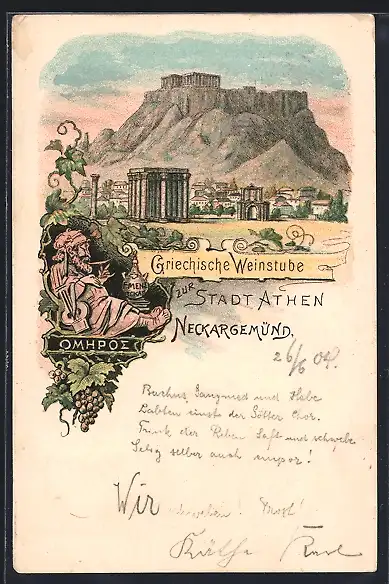 Griechische Weinstube
ZUR
STADT ATHEN
NECKARGEMÜND.
ΟΜΗΡΟΣ
26/6 04.
Bachus, Ganymed und Hebe
Labten einst der Götter Chor.
Trink der Reben Saft und schwebe
Selig selber auch empor!
Wir schweben! Prost!
Käthe